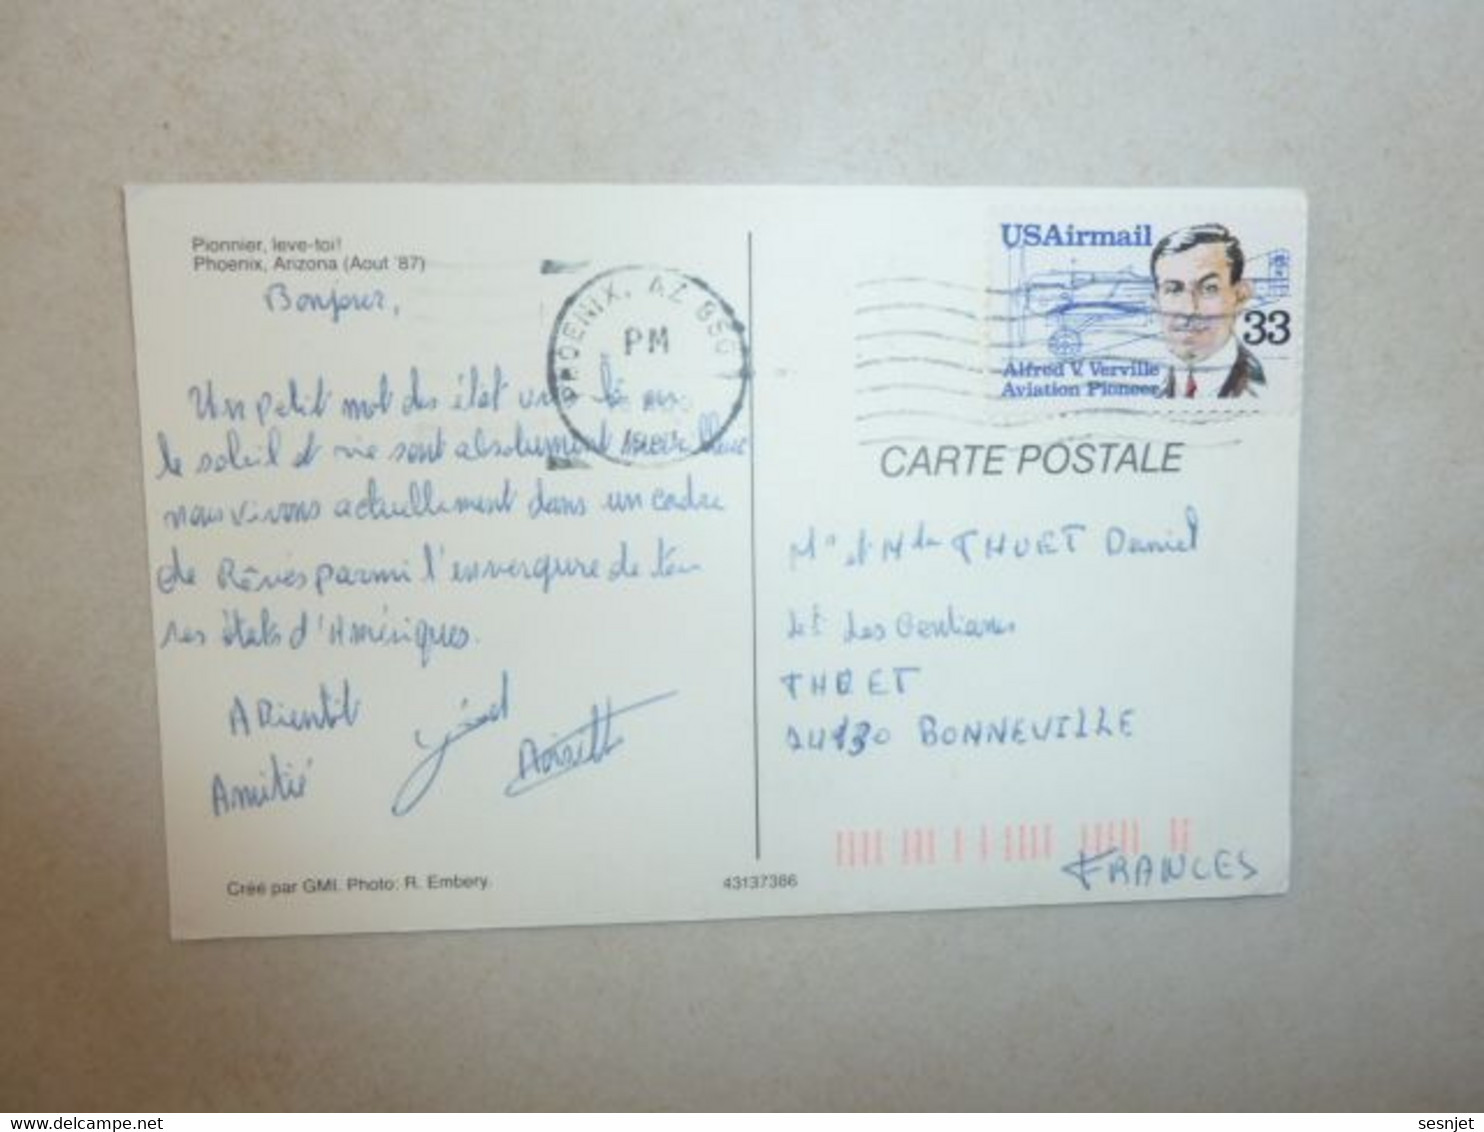 Pionnier, leve-toi!
Phoenix, Arizona (Aout '87)
Bonjour,
Un petit mot des état unis
le soleil et vie sont absolument
nous vivons actuellement dans un cadre
de Rêves parmi l'envergure de
res états d'Amériques.
A Bientôt
Amitié
Créé par GMI. Photo: R. Embery.
43137386
PHOENIX, AZ 850
PM
USAirmail
33
Alfred V. Verville
Aviation Pioneer
CARTE POSTALE
Mr et Mde THUET Daniel
Lot Les Gentianes
THUET
74130 BONNEVILLE
FRANCES
sesnjet